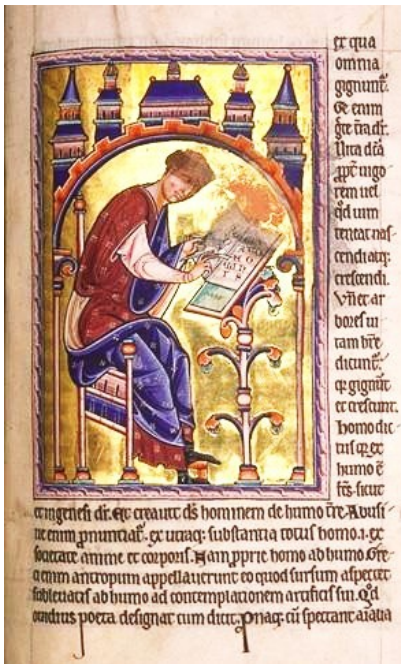 ex qua
omnia
gignunt᷑.
Et enim
g̃te t̃ra dr̃.
Vita dc̃a
ꝓpt̃ uigo
rem uel
qđ uim
teneat nas
cendi atq;
crescendi.
Vn̄ et ar
bores ui
tam hr̄e
dicunt᷑.
q; gignunt᷑
et crescunt.
homo dic
tus q; ex
humo ē
fc̄s. sicut
et in genesi dr̃. Et creauit ds̄ hominem de humo t̃re. Abusi
ue enim pronunciat᷑. ex utraq; substantia totus homo .i. ex
societate anime et corporis. Nam proprie homo ab humo. Gre
ci enim antropum appellauerunt eo quod sursum aspectet
subleuatus ab humo ad contemplationem artificis sui. Qđ
ouidius poeta designat cum dicit. Pnaq; cū spectant aialia